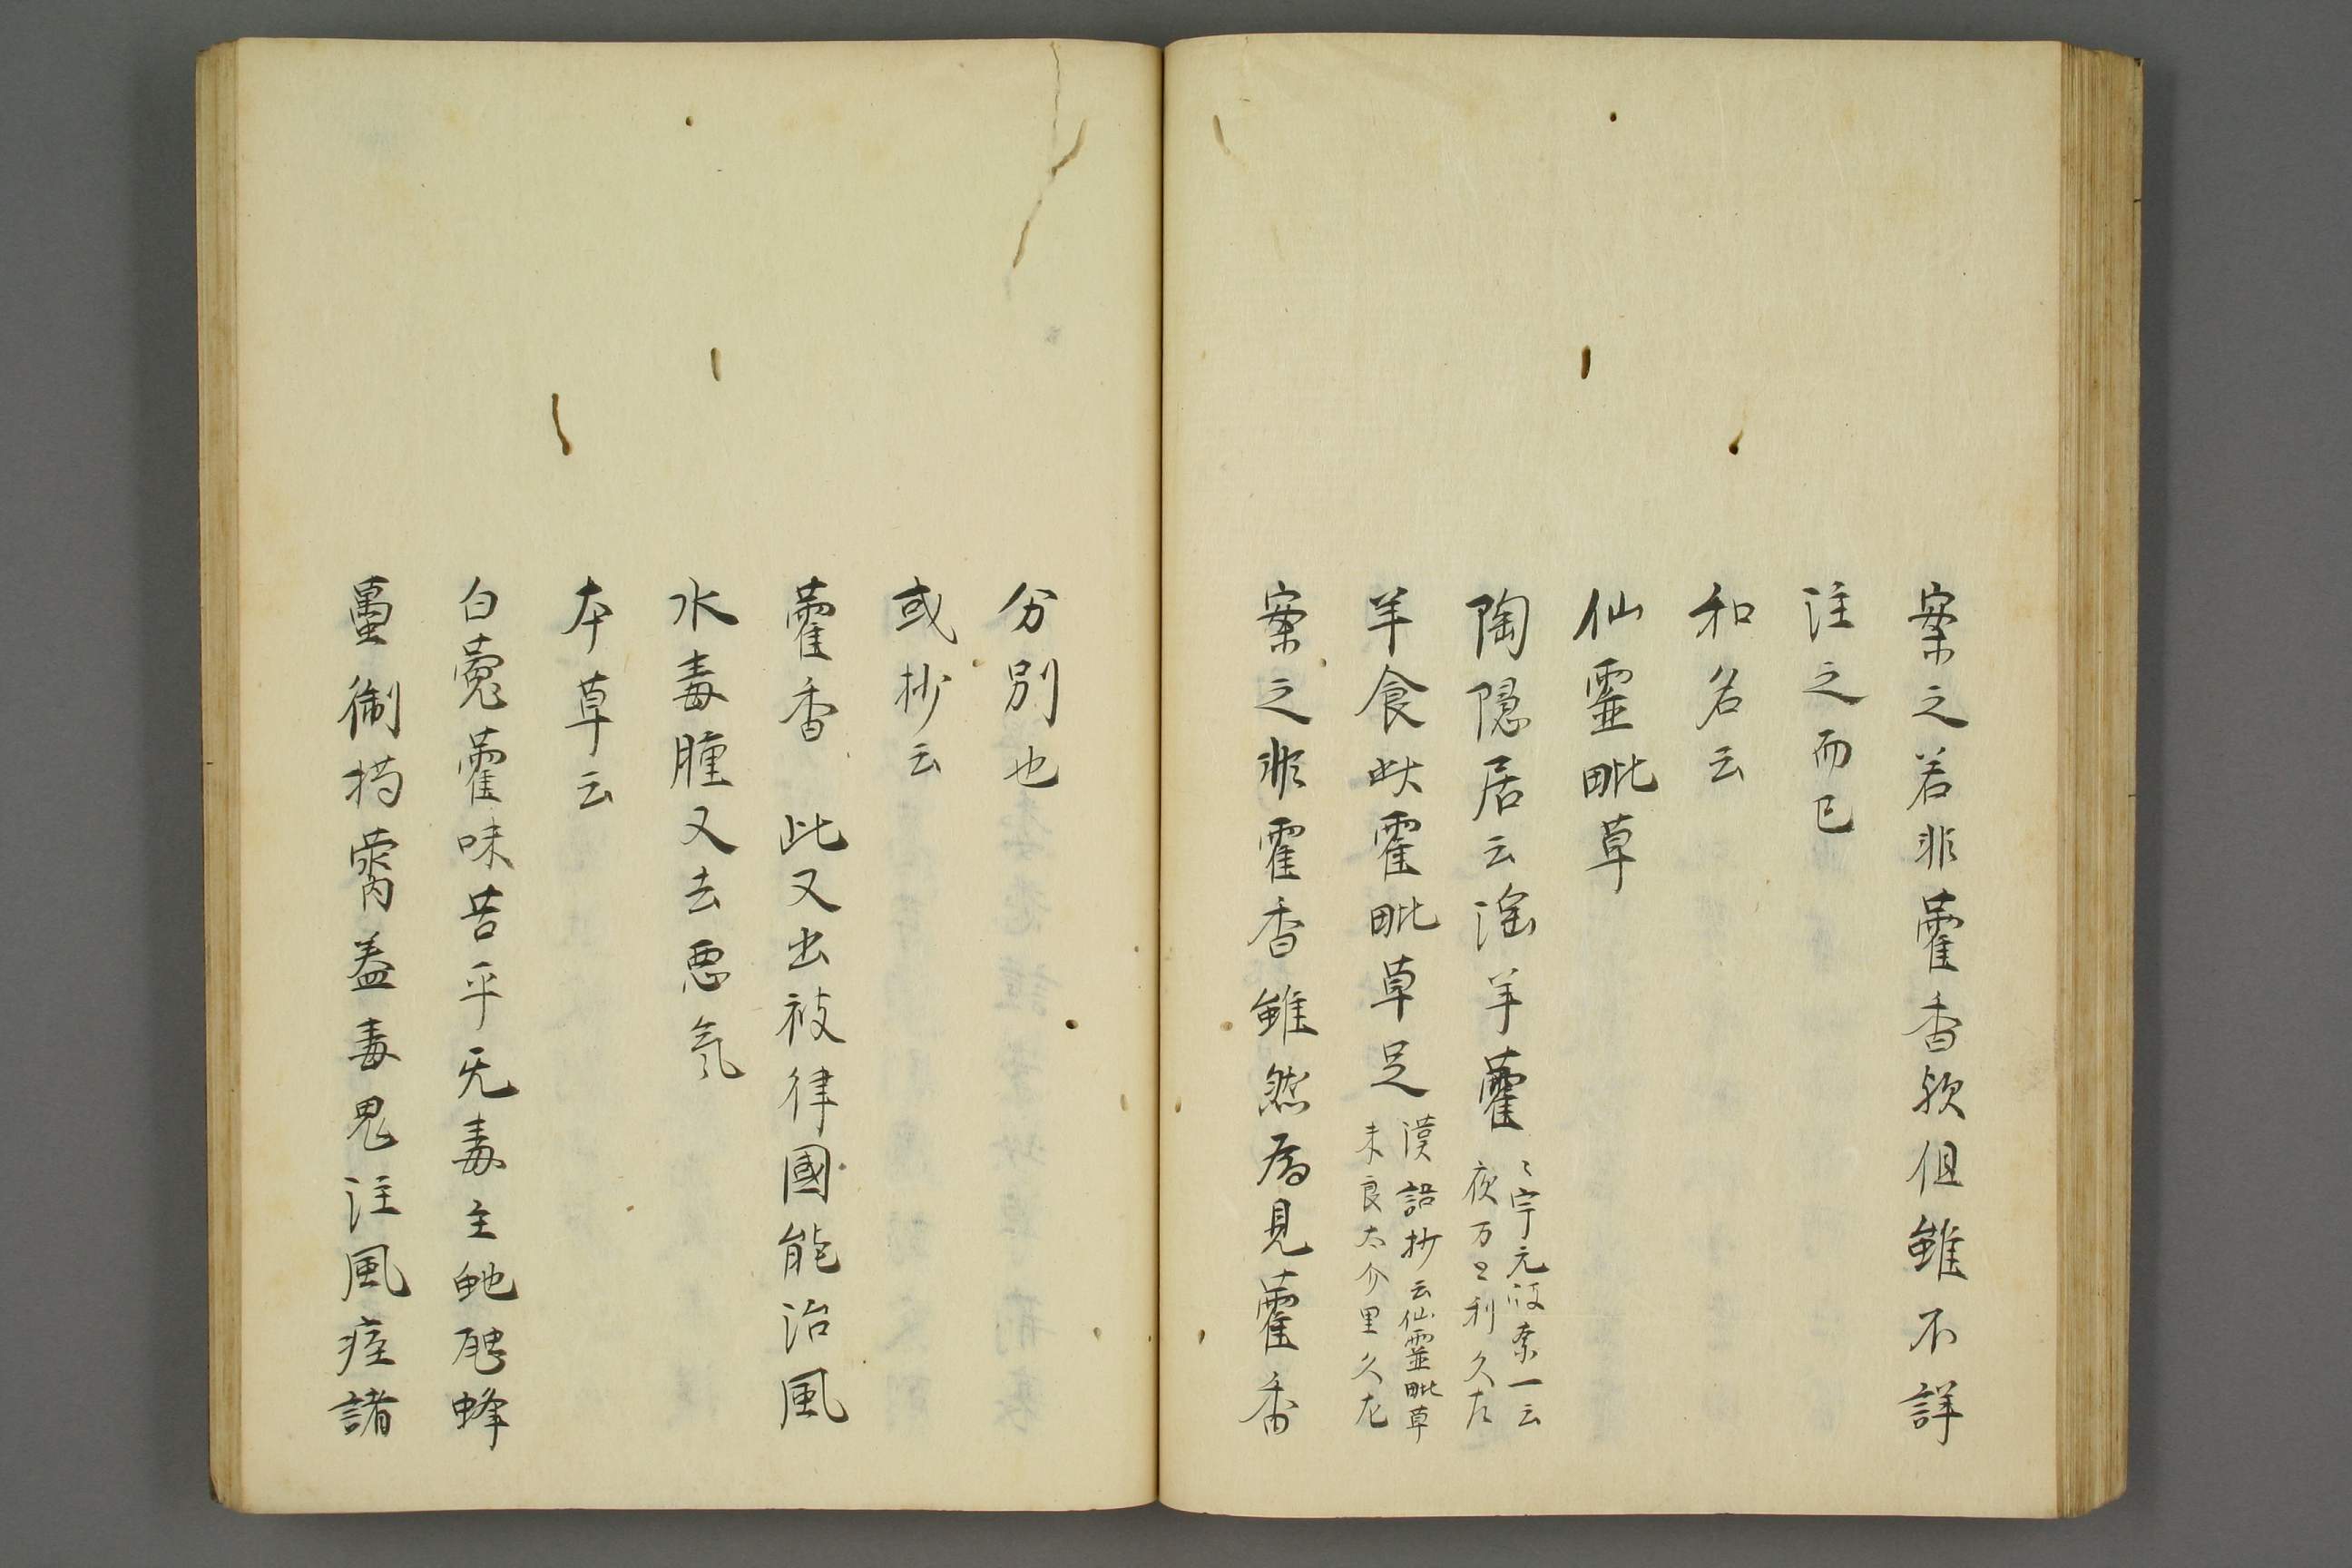 案之若非藿香欤但雖不詳
注之而已
和名云
仙霊毗草
陶隠居云淫羊藿
宇元波奈一云
夜万止利久左
羊食此藿毗草足
漢語抄云仙霊毗草
末良太介里久左
案之非霍香雖然為見藿香
分別也
或抄云
藿香 此又出被律國能治風
水毒腫又去悪氣
本草云
白菟藿味苦平无毒主虵虺蜂
蠆猘狗蠱毒鬼注風疰諸